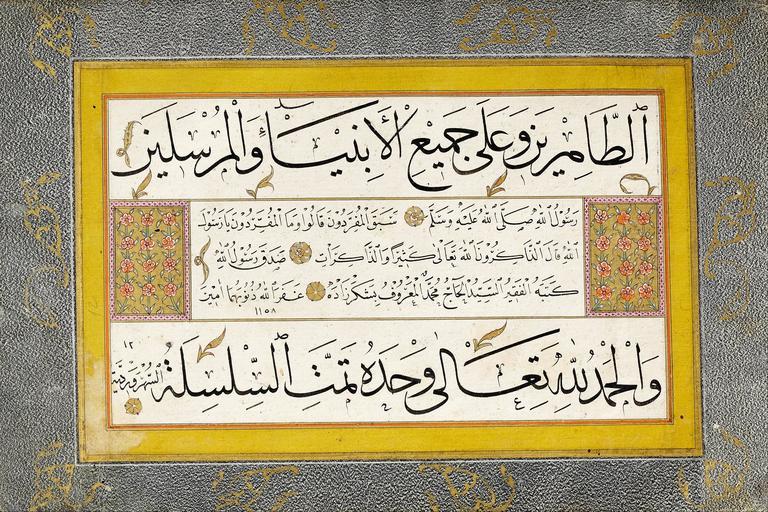 الطاهرين وعلى جميع الأنبياء والمرسلين
رسول الله صلى الله عليه وسلم سبق المفردون قالوا وما المفردون يا رسول
الله قال الذاكرون الله تعالى كثيرا والذاكرات صدق رسول الله
كتبه الفقير السيد الحاج محمد المعروف بشكرزاده غفر الله ذنوبهما آمين
١١٥٨
والحمد لله تعالى وحده تمت السلسلة السهروردية
١٢